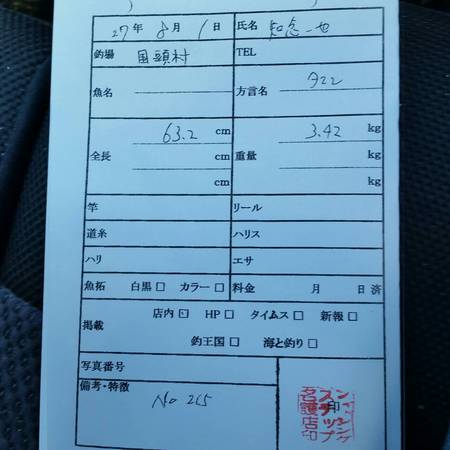 27年 8月 1日 氏名 知念一也
釣場 国頭村 TEL
魚名 方言名 タマン
63.2 cm 3.42 kg
全長 cm 重量 kg
cm kg
竿 リール
道糸 ハリス
ハリ エサ
魚拓 白黒□ カラー□ 料金 月 日 済
店内□ HP□ タイムス□ 新報□
掲載
釣王国□ 海と釣り□
写真番号
備考・特徴
No 265
印
名護店印